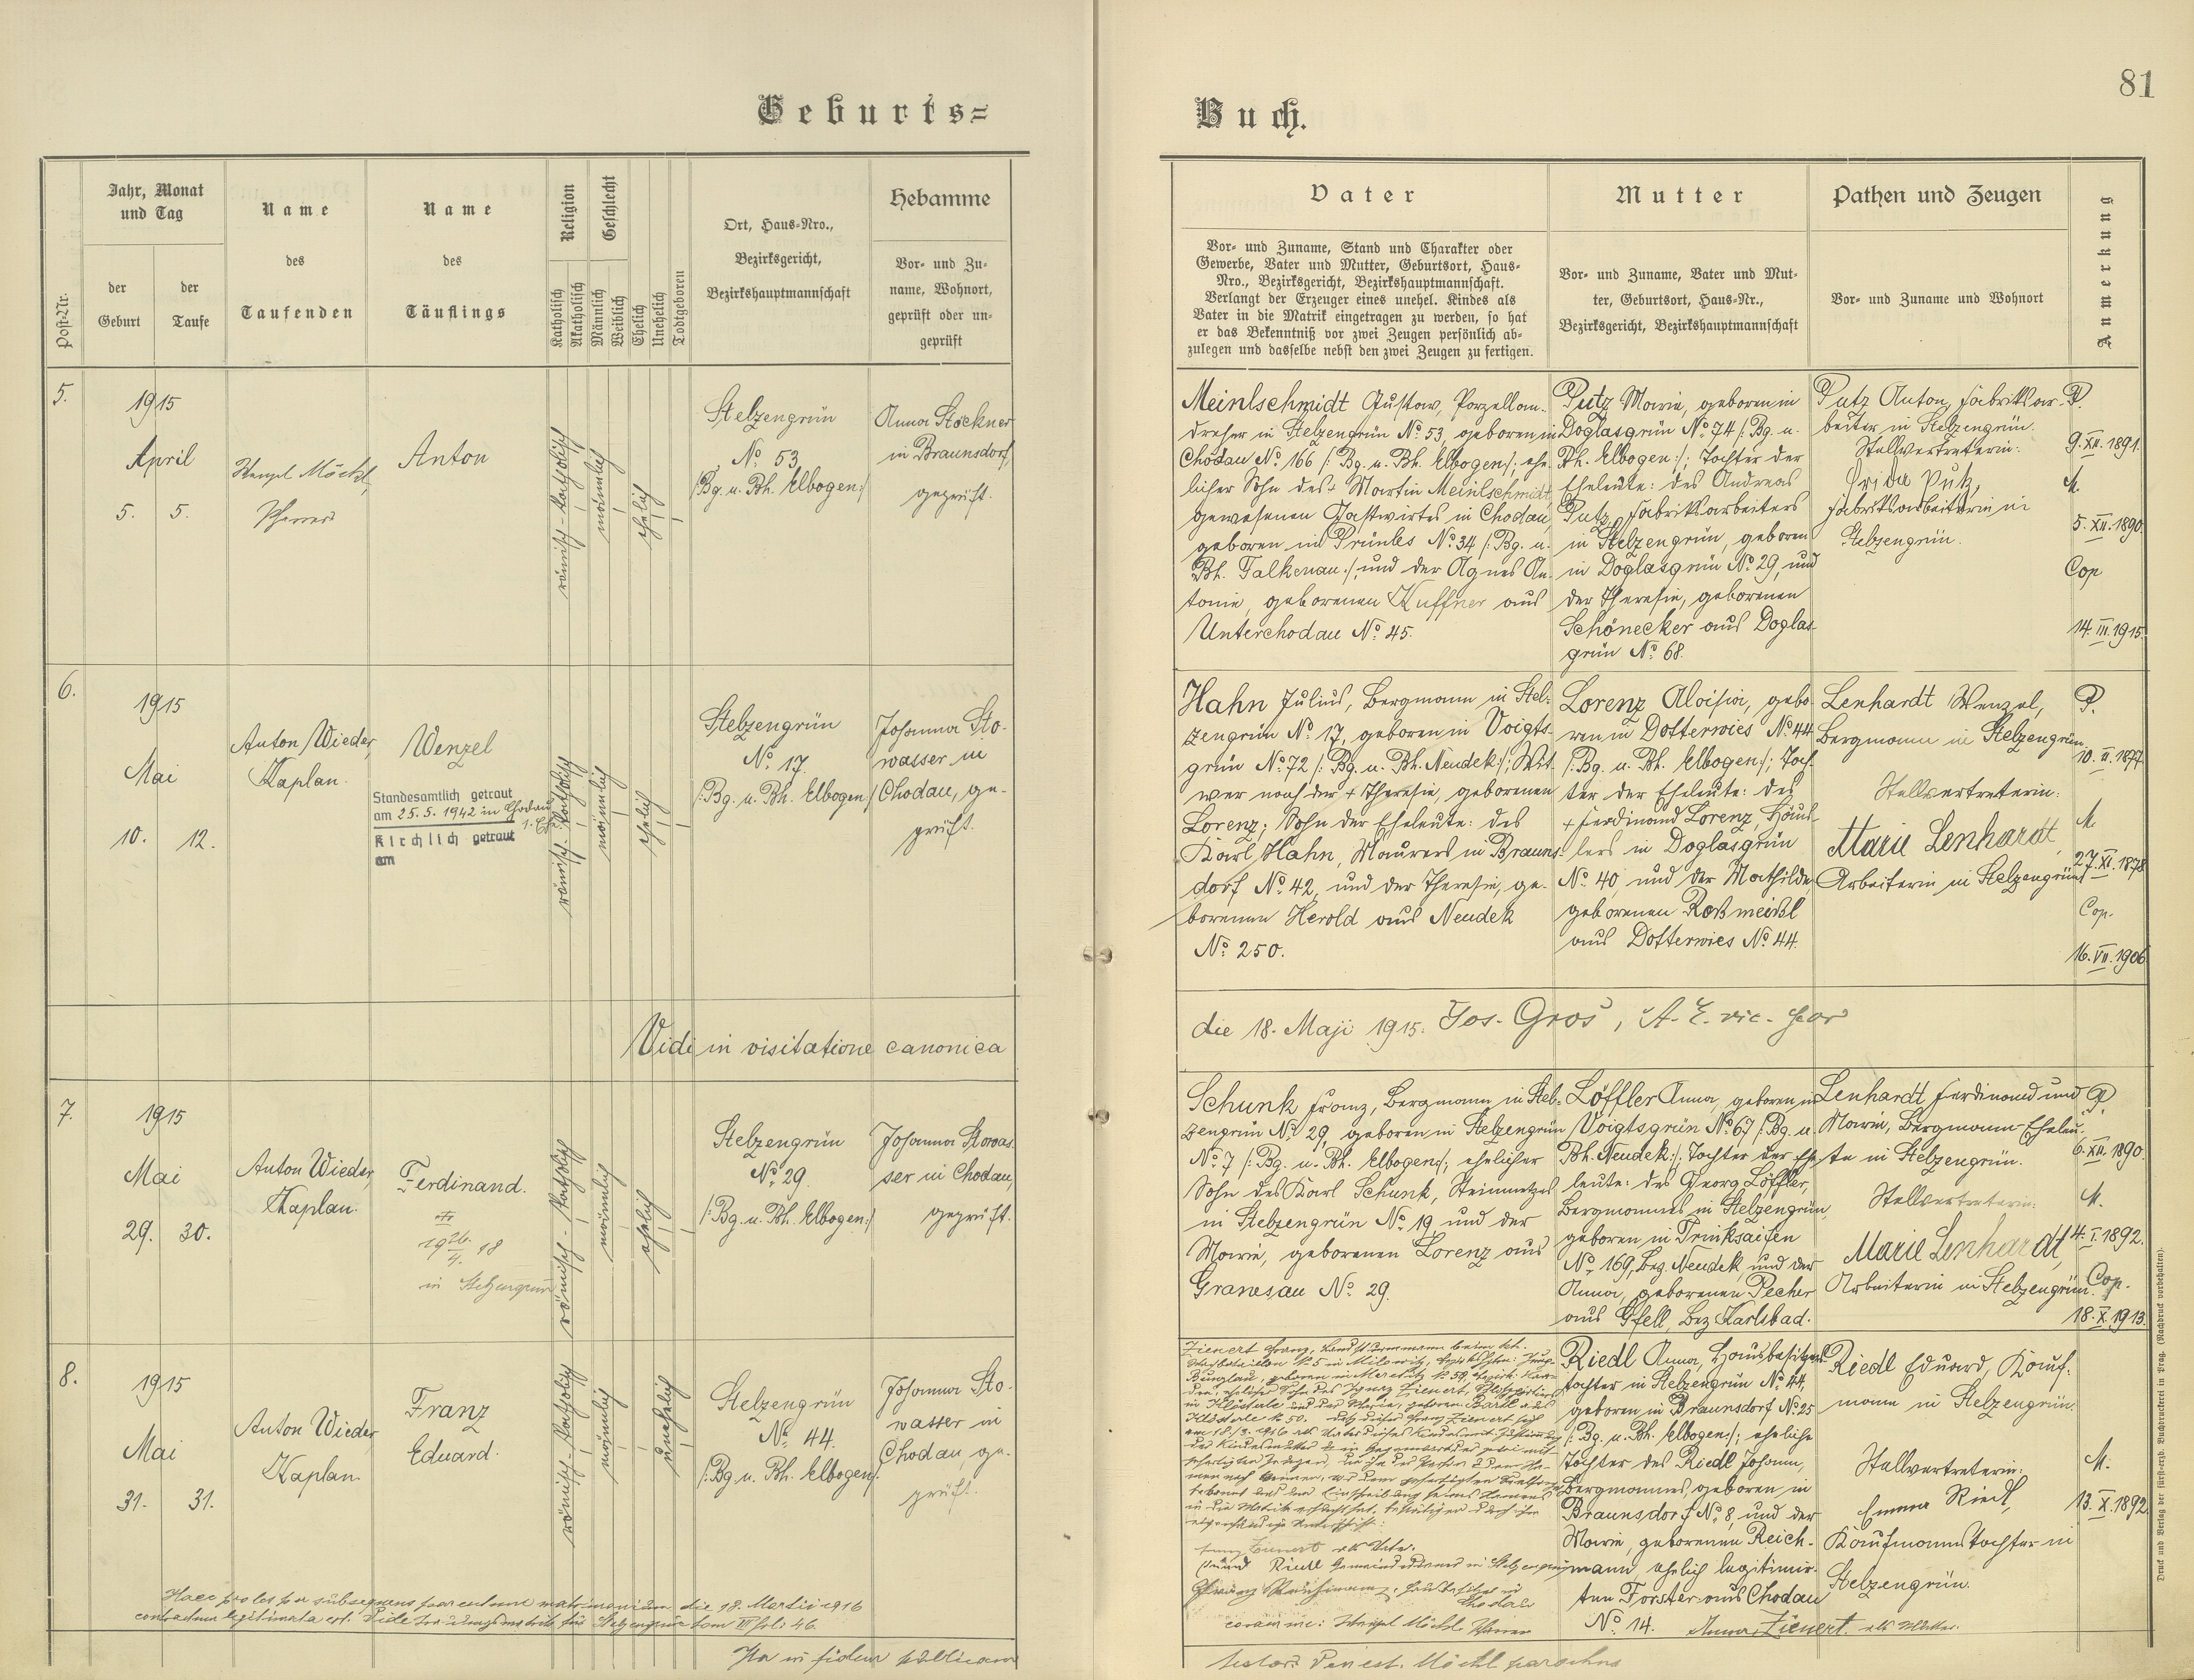 81
Geburts=
Buch.
Post-Nr.
Jahr, Monat
und Tag
der
Geburt
der
Taufe
Name
des
Taufenden
Name
des
Täuflings
Religion
Katholisch
Akatholisch
Geschlecht
Männlich
Weiblich
Ehelich
Unehelich
Todtgeboren
Ort, Haus-Nro.,
Bezirksgericht,
Bezirkshauptmannschaft
Hebamme
Vor- und Zu-
name, Wohnort,
geprüft oder un-
geprüft
Vater
Vor- und Zuname, Stand und Charakter oder
Gewerbe, Vater und Mutter, Geburtsort, Haus-
Nro., Bezirksgericht, Bezirkshauptmannschaft.
Verlangt der Erzeuger eines unehel. Kindes als
Vater in die Matrik eingetragen zu werden, so hat
er das Bekenntniß vor zwei Zeugen persönlich ab-
zulegen und dasselbe nebst den zwei Zeugen zu fertigen.
Mutter
Vor- und Zuname, Vater und Mut-
ter, Geburtsort, Haus-Nr.,
Bezirksgericht, Bezirkshauptmannschaft
Pathen und Zeugen
Vor- und Zuname und Wohnort
Anmerkung
5.
1915
April
5. 5.
Wenzel Möchl,
Pfarrer
Anton
römisch-katholisch
männlich
ehelich
Stelzengrün
No. 53
/:Bg. u. Bh. Elbogen:/
Anna Stöckner
in Braunsdorf,
geprüft.
Meinlschmidt Gustav, Porzellan-
dreher in Stelzengrün No. 53, geboren in
Chodau No. 166 /: Bg. u. Bh. Elbogen:/; ehe-
licher Sohn des + Martin Meinlschmidt,
gewesenen Gastwirtes in Chodau,
geboren in Prünles No. 34 /: Bg. u.
Bh. Falkenau:/, und der Agnes An-
tonie, geborenen Kuffner aus
Unterchodau No. 45.
Putz Marie, geboren in
Doglasgrün No. 74 /: Bg. u.
Bh. Elbogen:/; Tochter der
Eheleute: des Andreas
Putz, Fabriksarbeiters
in Stelzengrün, geboren
in Doglasgrün No. 29, und
der Theresie, geborenen
Schönecker aus Doglas-
grün No. 68.
Putz Anton, Fabriksar-
beiter in Stelzengrün.
Stellvertreterin:
Frida Putz,
Fabriksarbeiterin in
Stelzengrün.
P.
9. XII. 1891.
M.
5. XII. 1890.
Cop
14. III. 1915.
6.
1915
Mai
10. 12.
Anton Wieder,
Kaplan.
Wenzel
Standesamtlich getraut
am 25. 5. 1942 in Chodau
1. Ehe.
Kirchlich getraut
am
römisch-katholisch
männlich
ehelich
Stelzengrün
No. 17.
/: Bg. u. Bh. Elbogen:/
Johanna Sto-
wasser in
Chodau, ge-
prüft.
Hahn Julius, Bergmann in Stel-
zengrün No. 17, geboren in Voigts-
grün No. 72 /: Bg. u. Bh. Neudek:/; Wit-
wer nach der + Theresie, geborenen
Lorenz; Sohn der Eheleute: des
Karl Hahn, Maurers in Brauns-
dorf No. 42, und der Theresie, ge-
borenen Herold aus Neudek
No. 250.
Lorenz Aloisia, gebo-
ren in Dotterwies No. 44
/: Bg. u. Bh. Elbogen:/; Toch-
ter der Eheleute: des
+ Ferdinand Lorenz, Häus-
lers in Doglasgrün
No. 40, und der Mathilde,
geborenen Roßmeisl
aus Dotterwies No. 44.
Lenhardt Wenzel,
Bergmann in Stelzengrün.
Stellvertreterin:
Marie Lenhardt,
Arbeiterin in Stelzengrün
P.
10. II. 1877.
M.
27. XI. 1878
Cop.
16. VII. 1906
Vidi in visitatione canonica
die 18. Maji 1915. Jos. Gros,
7.
1915
Mai
29. 30.
Anton Wieder,
Kaplan.
Ferdinand.
in Stelzengrün
römisch-katholisch
männlich
ehelich
Stelzengrün
No. 29.
/: Bg. u. Bh. Elbogen:/
Johanna Stowas-
ser in Chodau,
geprüft.
Schunk Franz, Bergmann in Stel-
zengrün No. 29, geboren in Stelzengrün
No. 7 /: Bg. u. Bh. Elbogen:/; ehelicher
Sohn des Karl Schunk, Steinmetzes
in Stelzengrün No. 19 und der
Marie, geborenen Lorenz aus
Granesau No. 29.
Löffler Anna, geboren in
Voigtsgrün No. 67 /: Bg. u.
Bh. Neudek:/; Tochter der Ehe-
leute: des Georg Löffler,
Bergmannes in Stelzengrün,
geboren in Trinksaifen
No. 169, Bez. Neudek, und der
Anna, geborenen Pecher
aus Gfell, Bez Karlsbad.
Lenhardt Ferdinand und
Marie, Bergmann-Eheleu-
te in Stelzengrün.
Stellvertreterin:
Marie Lenhardt,
Arbeiterin in Stelzengrün.
P.
6. XII. 1890.
M.
4. I. 1892.
Cop.
18. X. 1913.
8.
1915
Mai
31. 31.
Anton Wieder
Kaplan.
Franz
Eduard.
römisch-katholisch
männlich
unehelich
Stelzengrün
No. 44.
/: Bg. u. Bh. Elbogen:/
Johanna Sto-
wasser in
Chodau, ge-
prüft.
Zienert Franz,
als Vater.
coram me: Wenzel Möchl, Pfarrer
Riedl Anna, Hausbesitzers-
tochter in Stelzengrün No. 44,
geboren in Braunsdorf No. 25
/: Bg. u. Bh. Elbogen:/; eheliche
Tochter des Riedl Johann,
Bergmannes, geboren in
Braunsdorf No. 8, und der
Marie, geborenen Reich-
mann, ehelich legitimir-
ten Forster aus Chodau
No. 14.
Anna Zienert als Mutter.
Riedl Eduard, Kauf-
mann in Stelzengrün.
Stellvertreterin:
Emma Riedl,
Kaufmannstochter in
Stelzengrün.
M.
13. X. 1892.
Haec proles per subsequens parentum matrimonium die 18. Martii 1916
contractum legitimata est. Vide Trauungsmatrik für Stelzengrün tom III fol: 46.
Ita in fidem publicam
Möchl parochus
Druck und Verlag der fürst-erzb. Buchdruckerei in Prag. (Nachdruck vorbehalten).